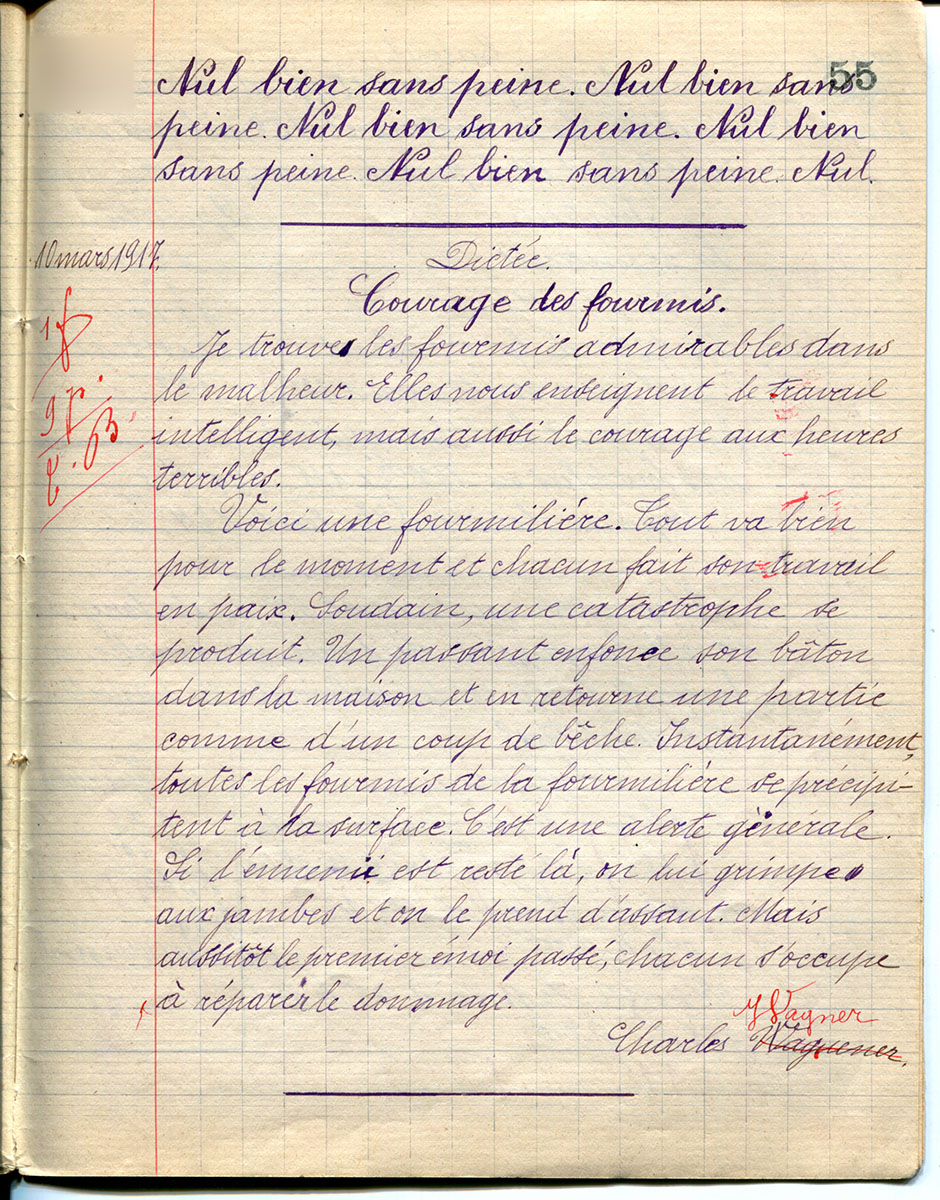 55
Nul bien sans peine. Nul bien sans
peine. Nul bien sans peine. Nul bien
sans peine. Nul bien sans peine. Nul.
10 mars 1917.
Dictée.
Courage des fourmis.
Je trouve les fourmis admirables dans
le malheur. Elles nous enseignent le travail
intelligent, mais aussi le courage aux heures
terribles.
Voici une fourmilière. Tout va bien
pour le moment et chacun fait son travail
en paix. Soudain, une catastrophe se
produit. Un passant enfonce son bâton
dans la maison et en retourne une partie
comme d'un coup de bêche. Instantanément,
toutes les fourmis de la fourmilière se précipi-
tent à la surface. C'est une alerte générale.
Si l'ennemi est resté là, on lui grimpe
aux jambes et on le prend d'assaut. Mais
aussitôt le premier émoi passé, chacun s'occupe
à réparer le dommage.
Wagner
Charles Waguener.